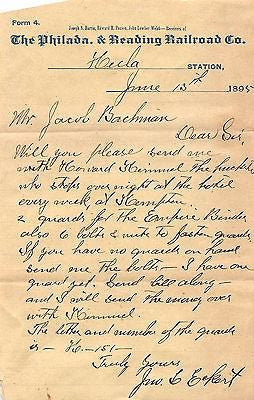 Form 4.
Joseph S. Harris, Edward M. Paxson, John Lowber Welsh—Receivers of
The Philada. & Reading Railroad Co.
Hecla
STATION,
June 13th 1895
Mr. Jacob Bachman
Dear Sir,
Will you please send me
with Howard Himmel the huckster
who stops over night at the hotel
every week, at Hampton.
2 guards for the Empire Binder
also 6 bolts & nuts to fasten guards.
If you have no guards on hand
send me the bolts— I have one
guard yet. Send bill along—
and I will send the money over
with Himmel.
The letter and number of the guards
is — H—151—
Truly Yours
Jno. E Eckert